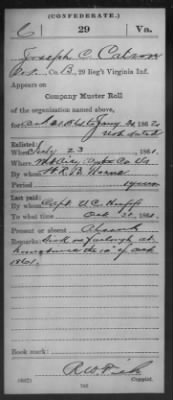 (CONFEDERATE.)
C 29 Va.
Joseph C. Catron
Pvt., Co. B, 29 Reg't Virginia Inf.
Appears on
Company Muster Roll
of the organization named above,
for Oct 31 to Jany 1, 186
not dated
Enlisted:
When July 23, 1861.
Where
By whom W. R. B. Horne
Period 1 year
Last paid:
By whom Capt. Huff
To what time Oct 31, 1861.
Present or absent Absent
Remarks: Sick on furlough at
Book mark:
Copyist.